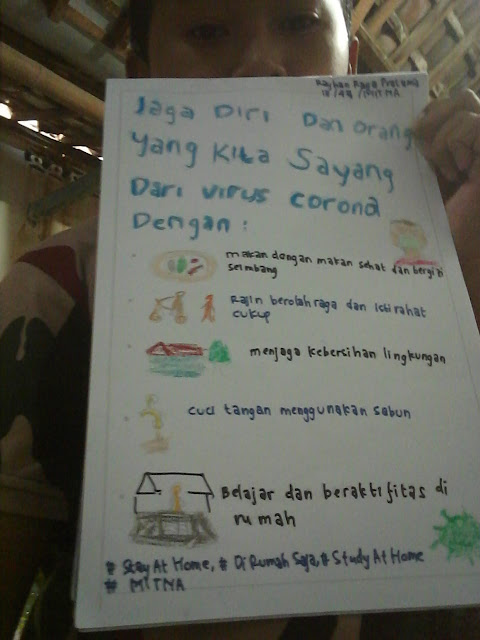 Rayhan Raga Pratama
MITNA
Jaga Diri Dan orang
Yang Kita Sayang
Dari virus corona
Dengan :
makan dengan makan sehat dan bergizi
seimbang
Rajin berolahraga dan istirahat
cukup
menjaga kebersihan lingkungan
cuci tangan menggunakan sabun
Belajar dan beraktifitas di
rumah
# Stay At Home, # Di Rumah Saja, # Study At Home
# MITNA